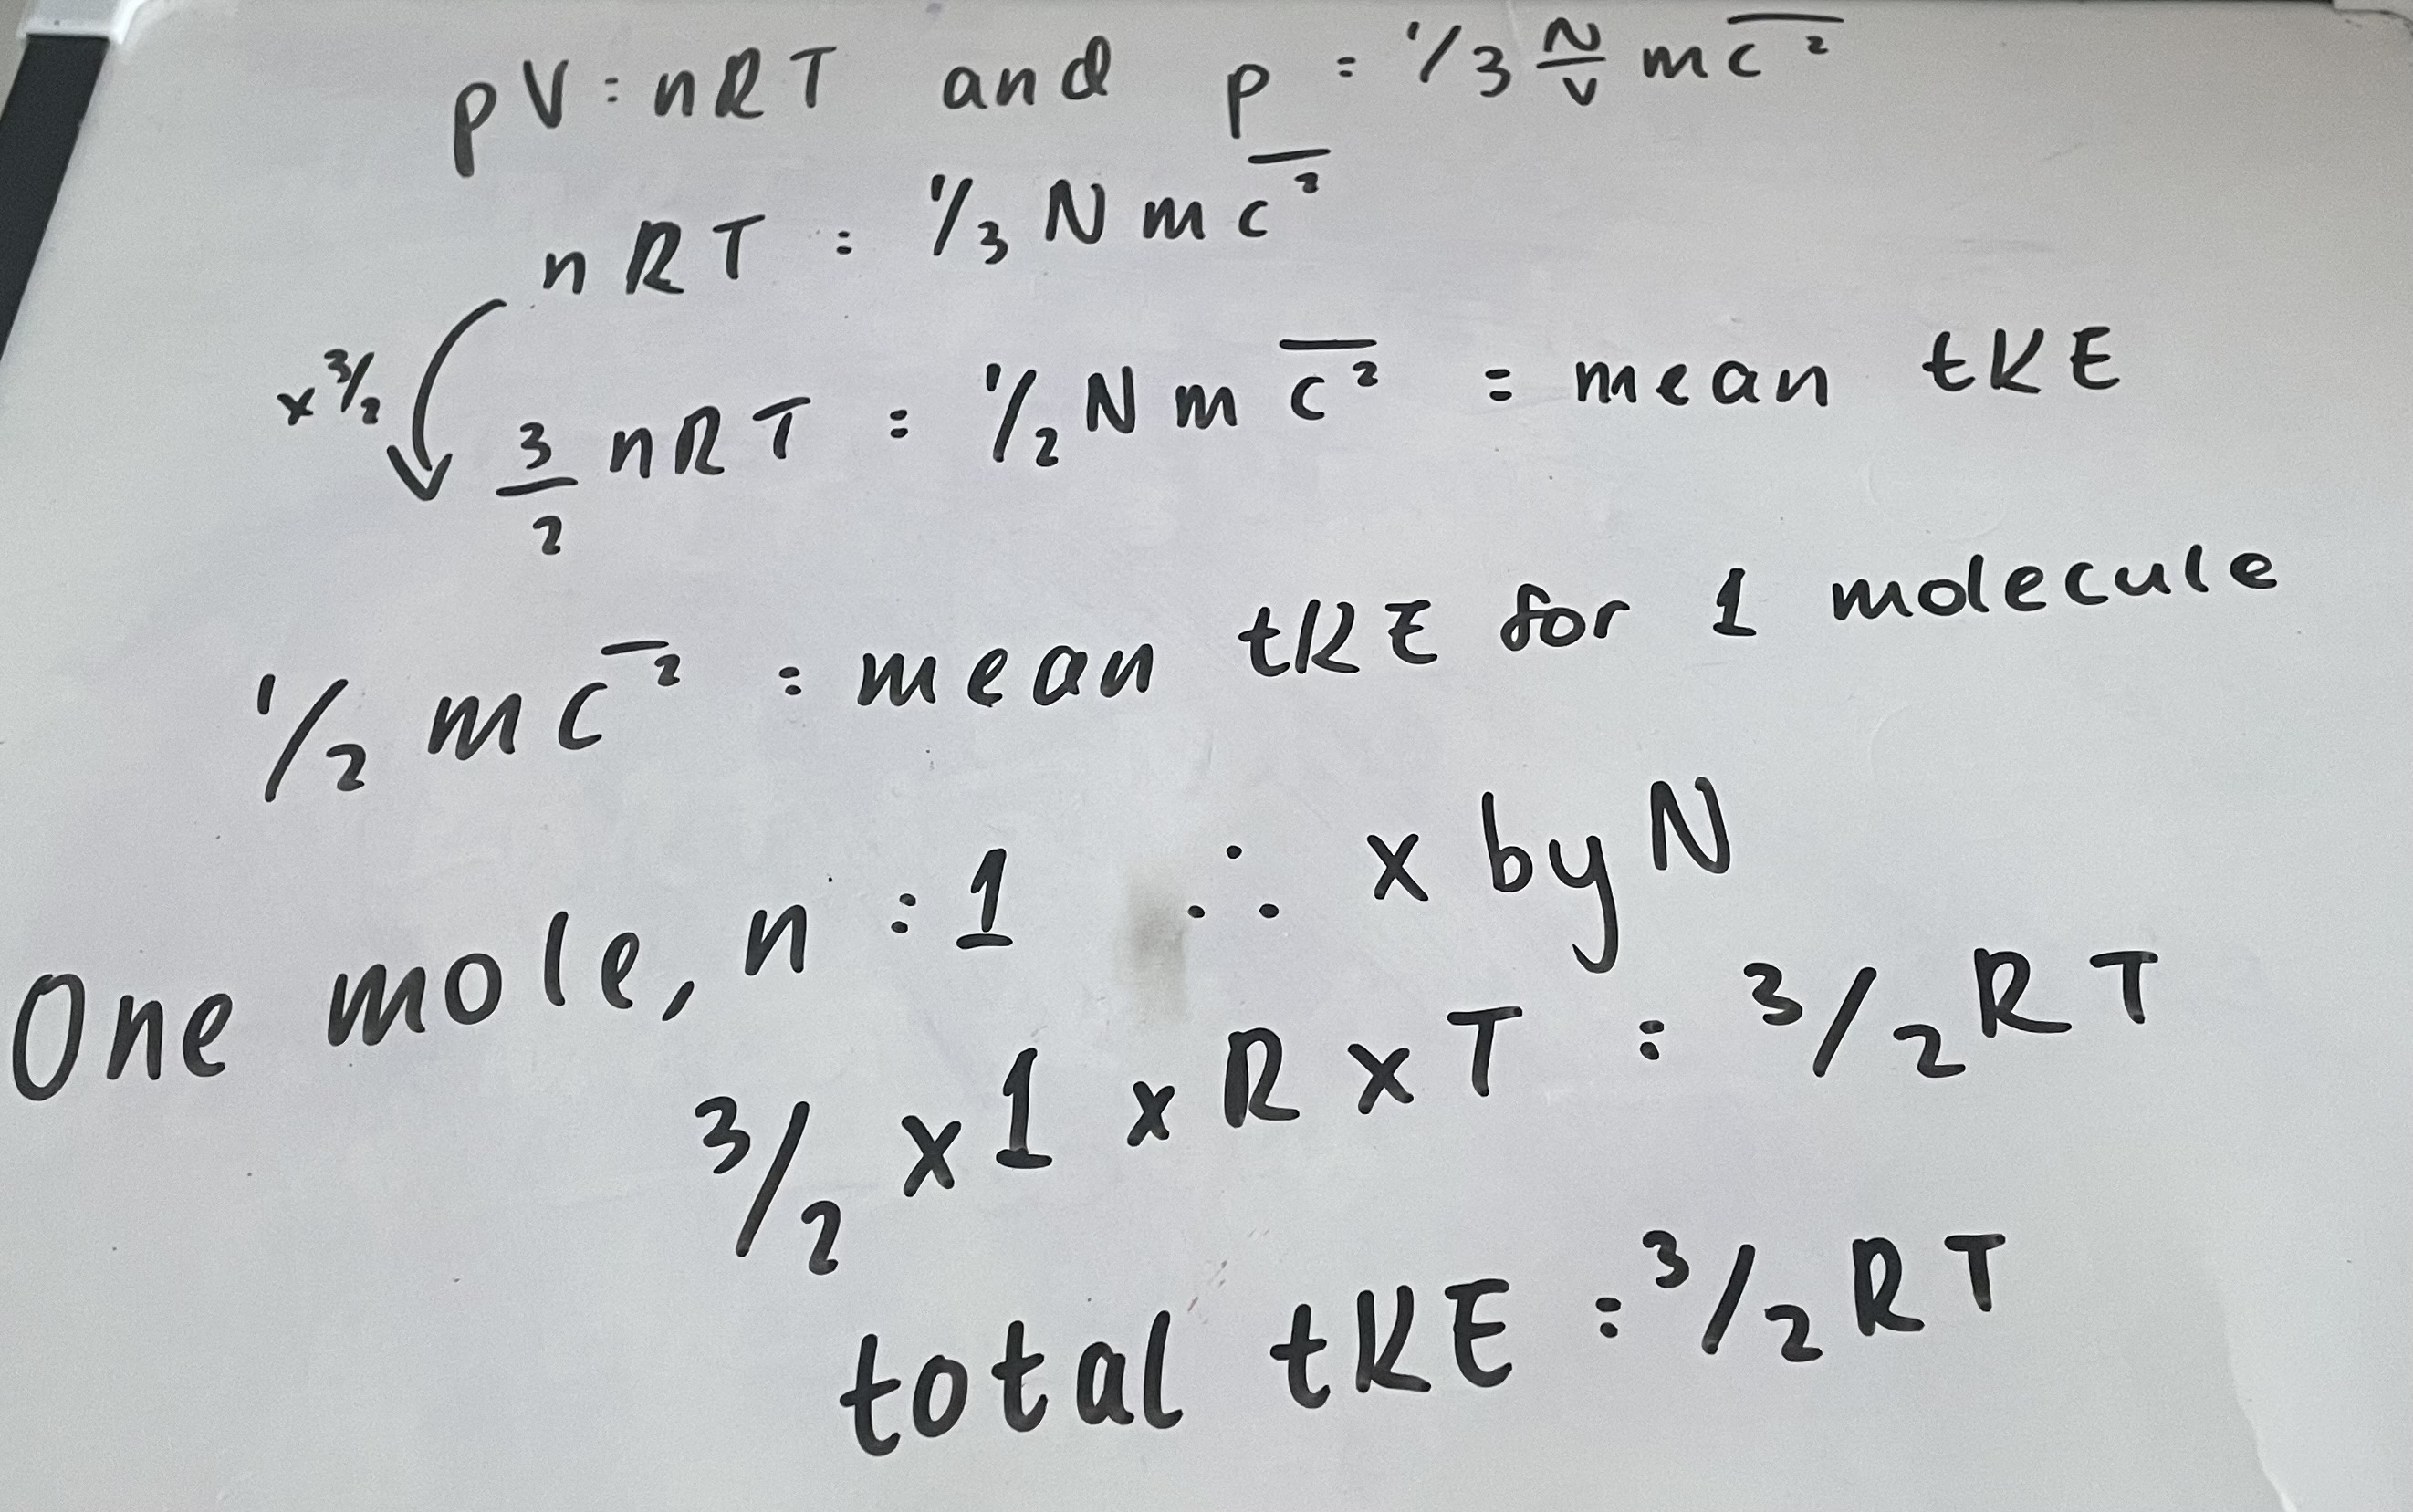 pV = nRT and p = 1/3 N/V m c̅²
nRT = 1/3 N m c̅²
x 3/2
3/2 nRT = 1/2 N m c̅² = mean tKE
1/2 m c̅² = mean tKE for 1 molecule
One mole, n = 1 ∴ x by N
3/2 x 1 x R x T = 3/2 RT
total tKE = 3/2 RT